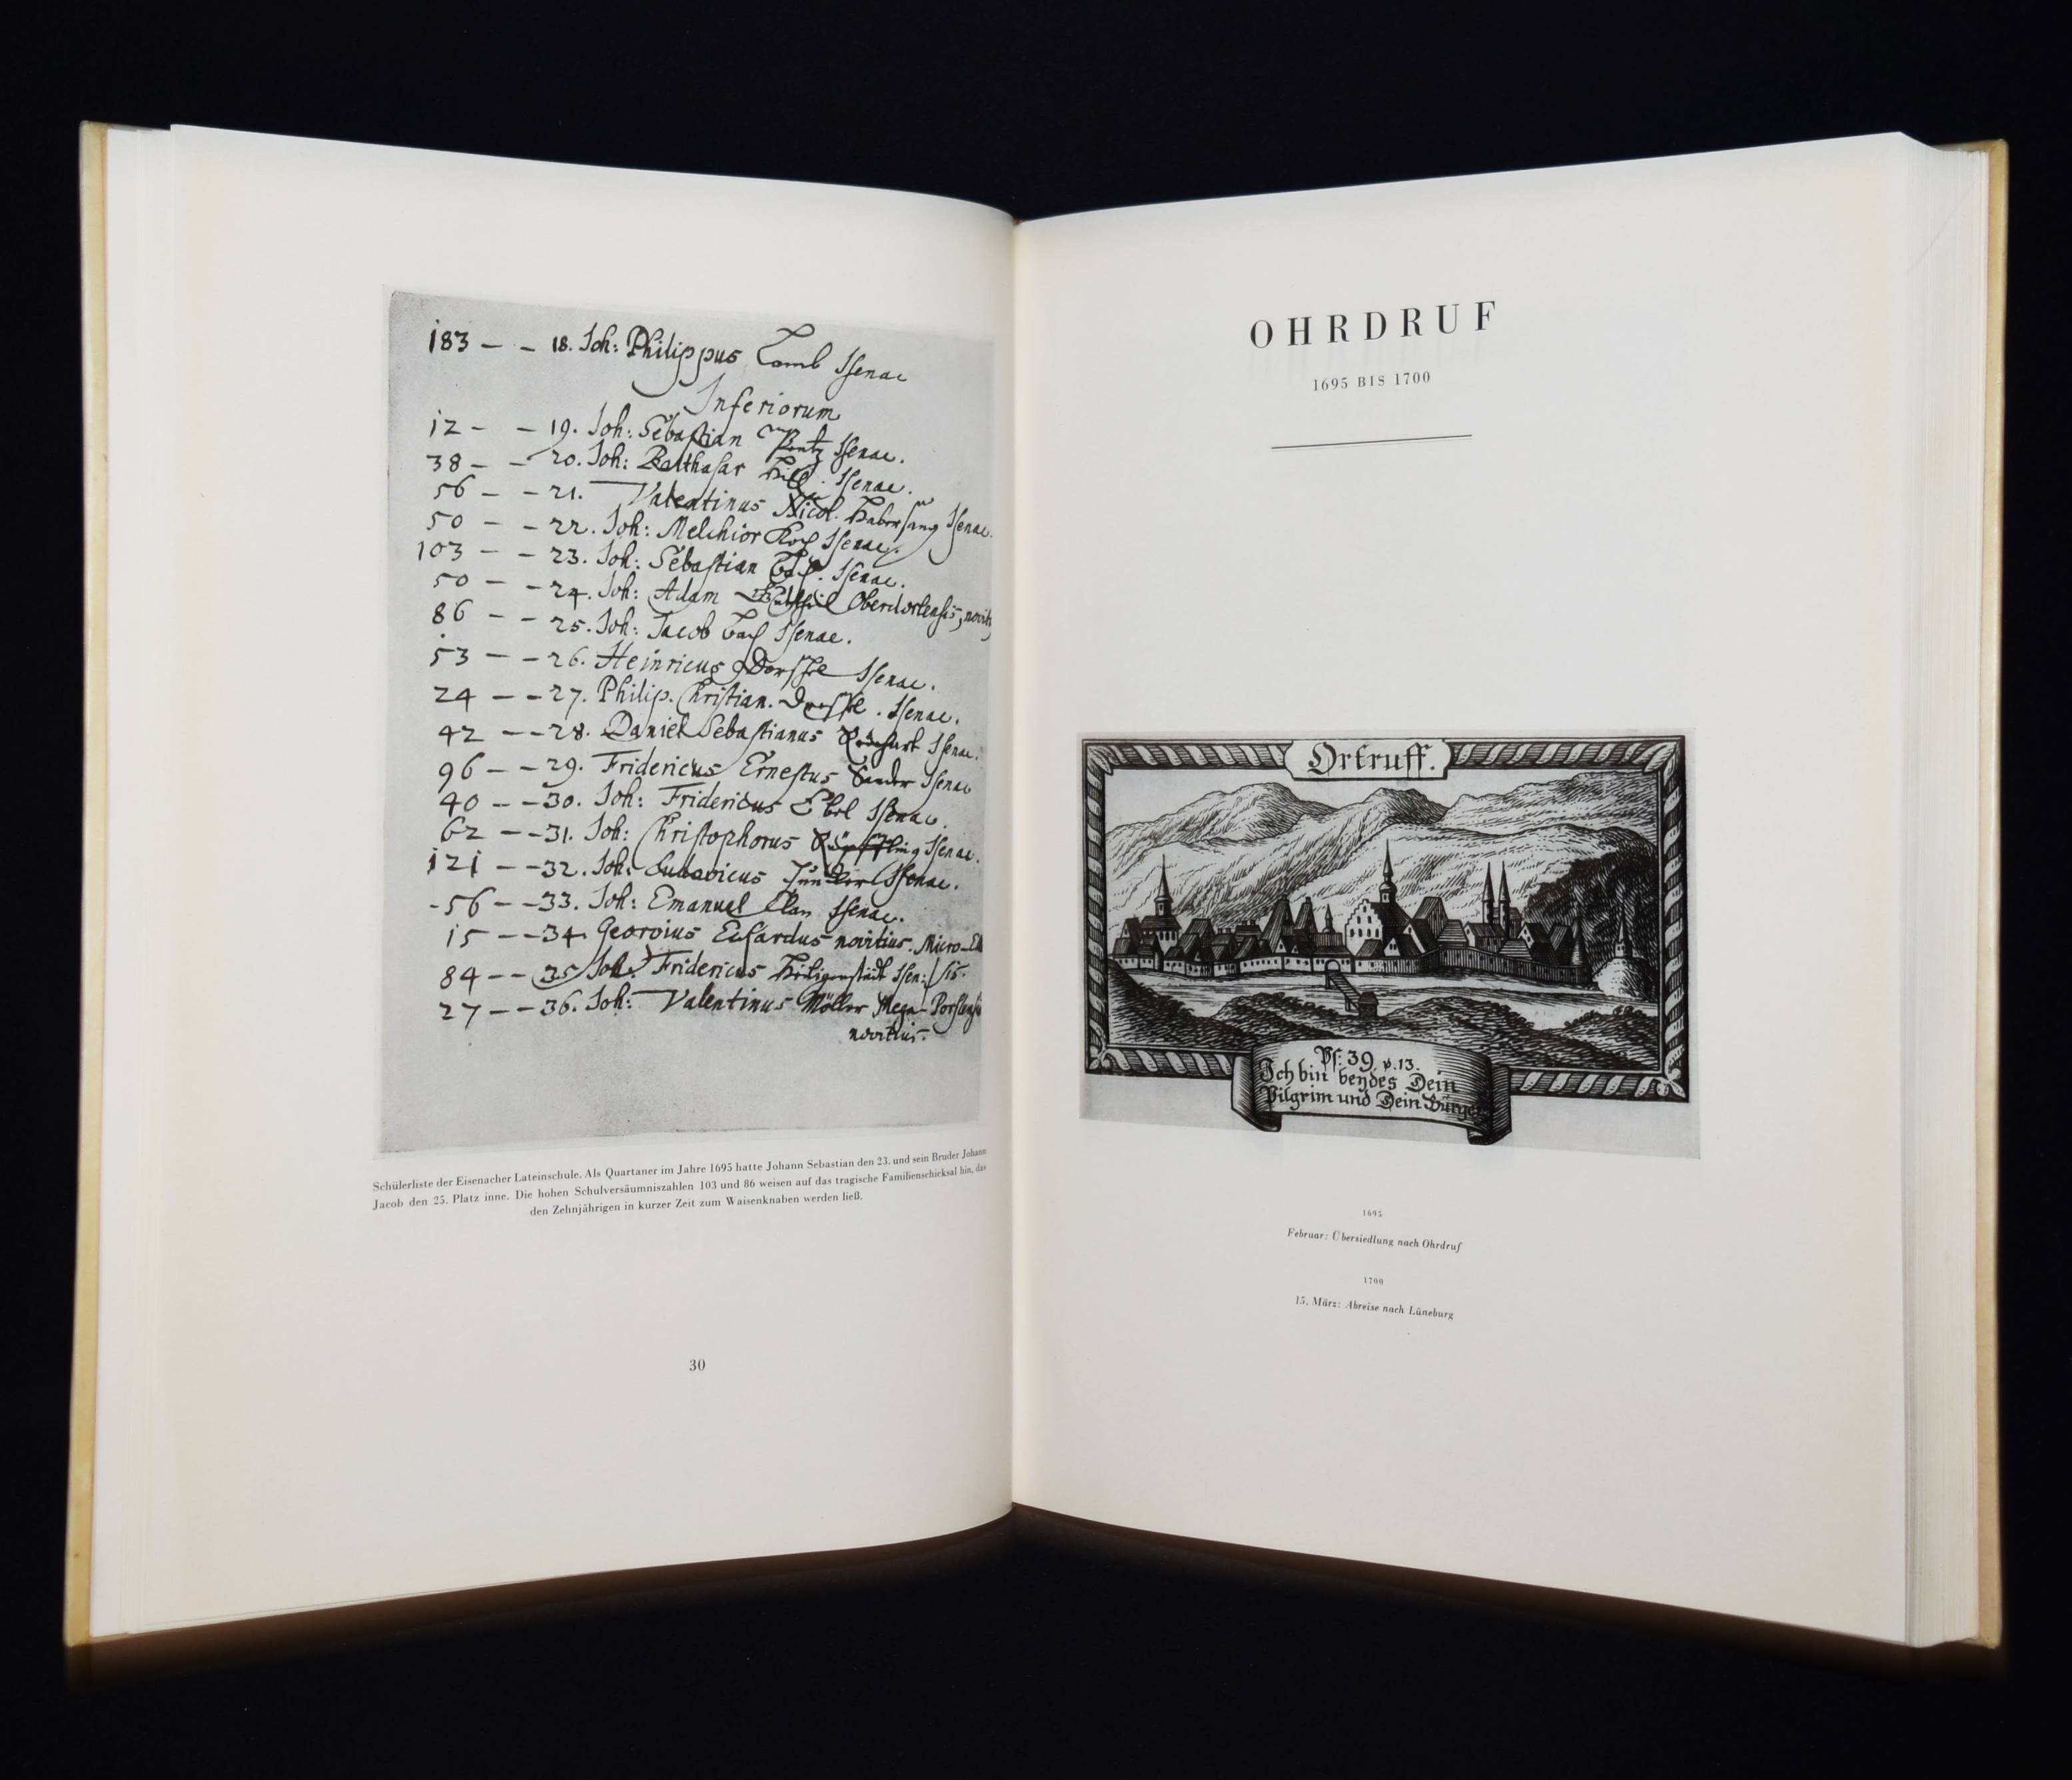 183 – – 18. Joh: Philippus Lamb Isenac
Inferiorum
12 – – 19. Joh: Sebastian Isenac.
38 – – 20. Joh: Balthasar Isenac.
56 – – 21. Valentinus Nicol. Isenac.
50 – – 22. Joh: Melchior Koch Isenac.
103 – – 23. Joh: Sebastian Bach. Isenac.
50 – – 24. Joh: Adam
86 – – 25. Joh: Jacob Bach Isenac.
53 – – 26. Heinricus Isenac.
24 – – 27. Philip. Christian. Isenac.
42 – – 28. Daniel Sebastianus Isenac.
96 – – 29. Fridericus Ernestus Sander Isenac
40 – – 30. Joh: Fridericus Isenac.
62 – – 31. Joh: Christophorus Isenac.
121 – – 32. Joh: Ludovicus Juncker Isenac.
-56 – – 33. Joh: Emanuel Isenac.
15 – – 34. Georgius novitius.
84 – – 35 Joh. Fridericus Isen:
27 – – 36. Joh: Valentinus Möller
novitius.
Schülerliste der Eisenacher Lateinschule. Als Quartaner im Jahre 1695 hatte Johann Sebastian den 23. und sein Bruder Johann
Jacob den 25. Platz inne. Die hohen Schulversäumniszahlen 103 und 86 weisen auf das tragische Familienschicksal hin, das
den Zehnjährigen in kurzer Zeit zum Waisenknaben werden ließ.
30
OHRDRUF
1695 BIS 1700
Ortruff.
Ps: 39. v.13.
Ich bin beydes Dein
Pilgrim und Dein Bürger
1695
Februar: Übersiedlung nach Ohrdruf
1700
15. März: Abreise nach Lüneburg